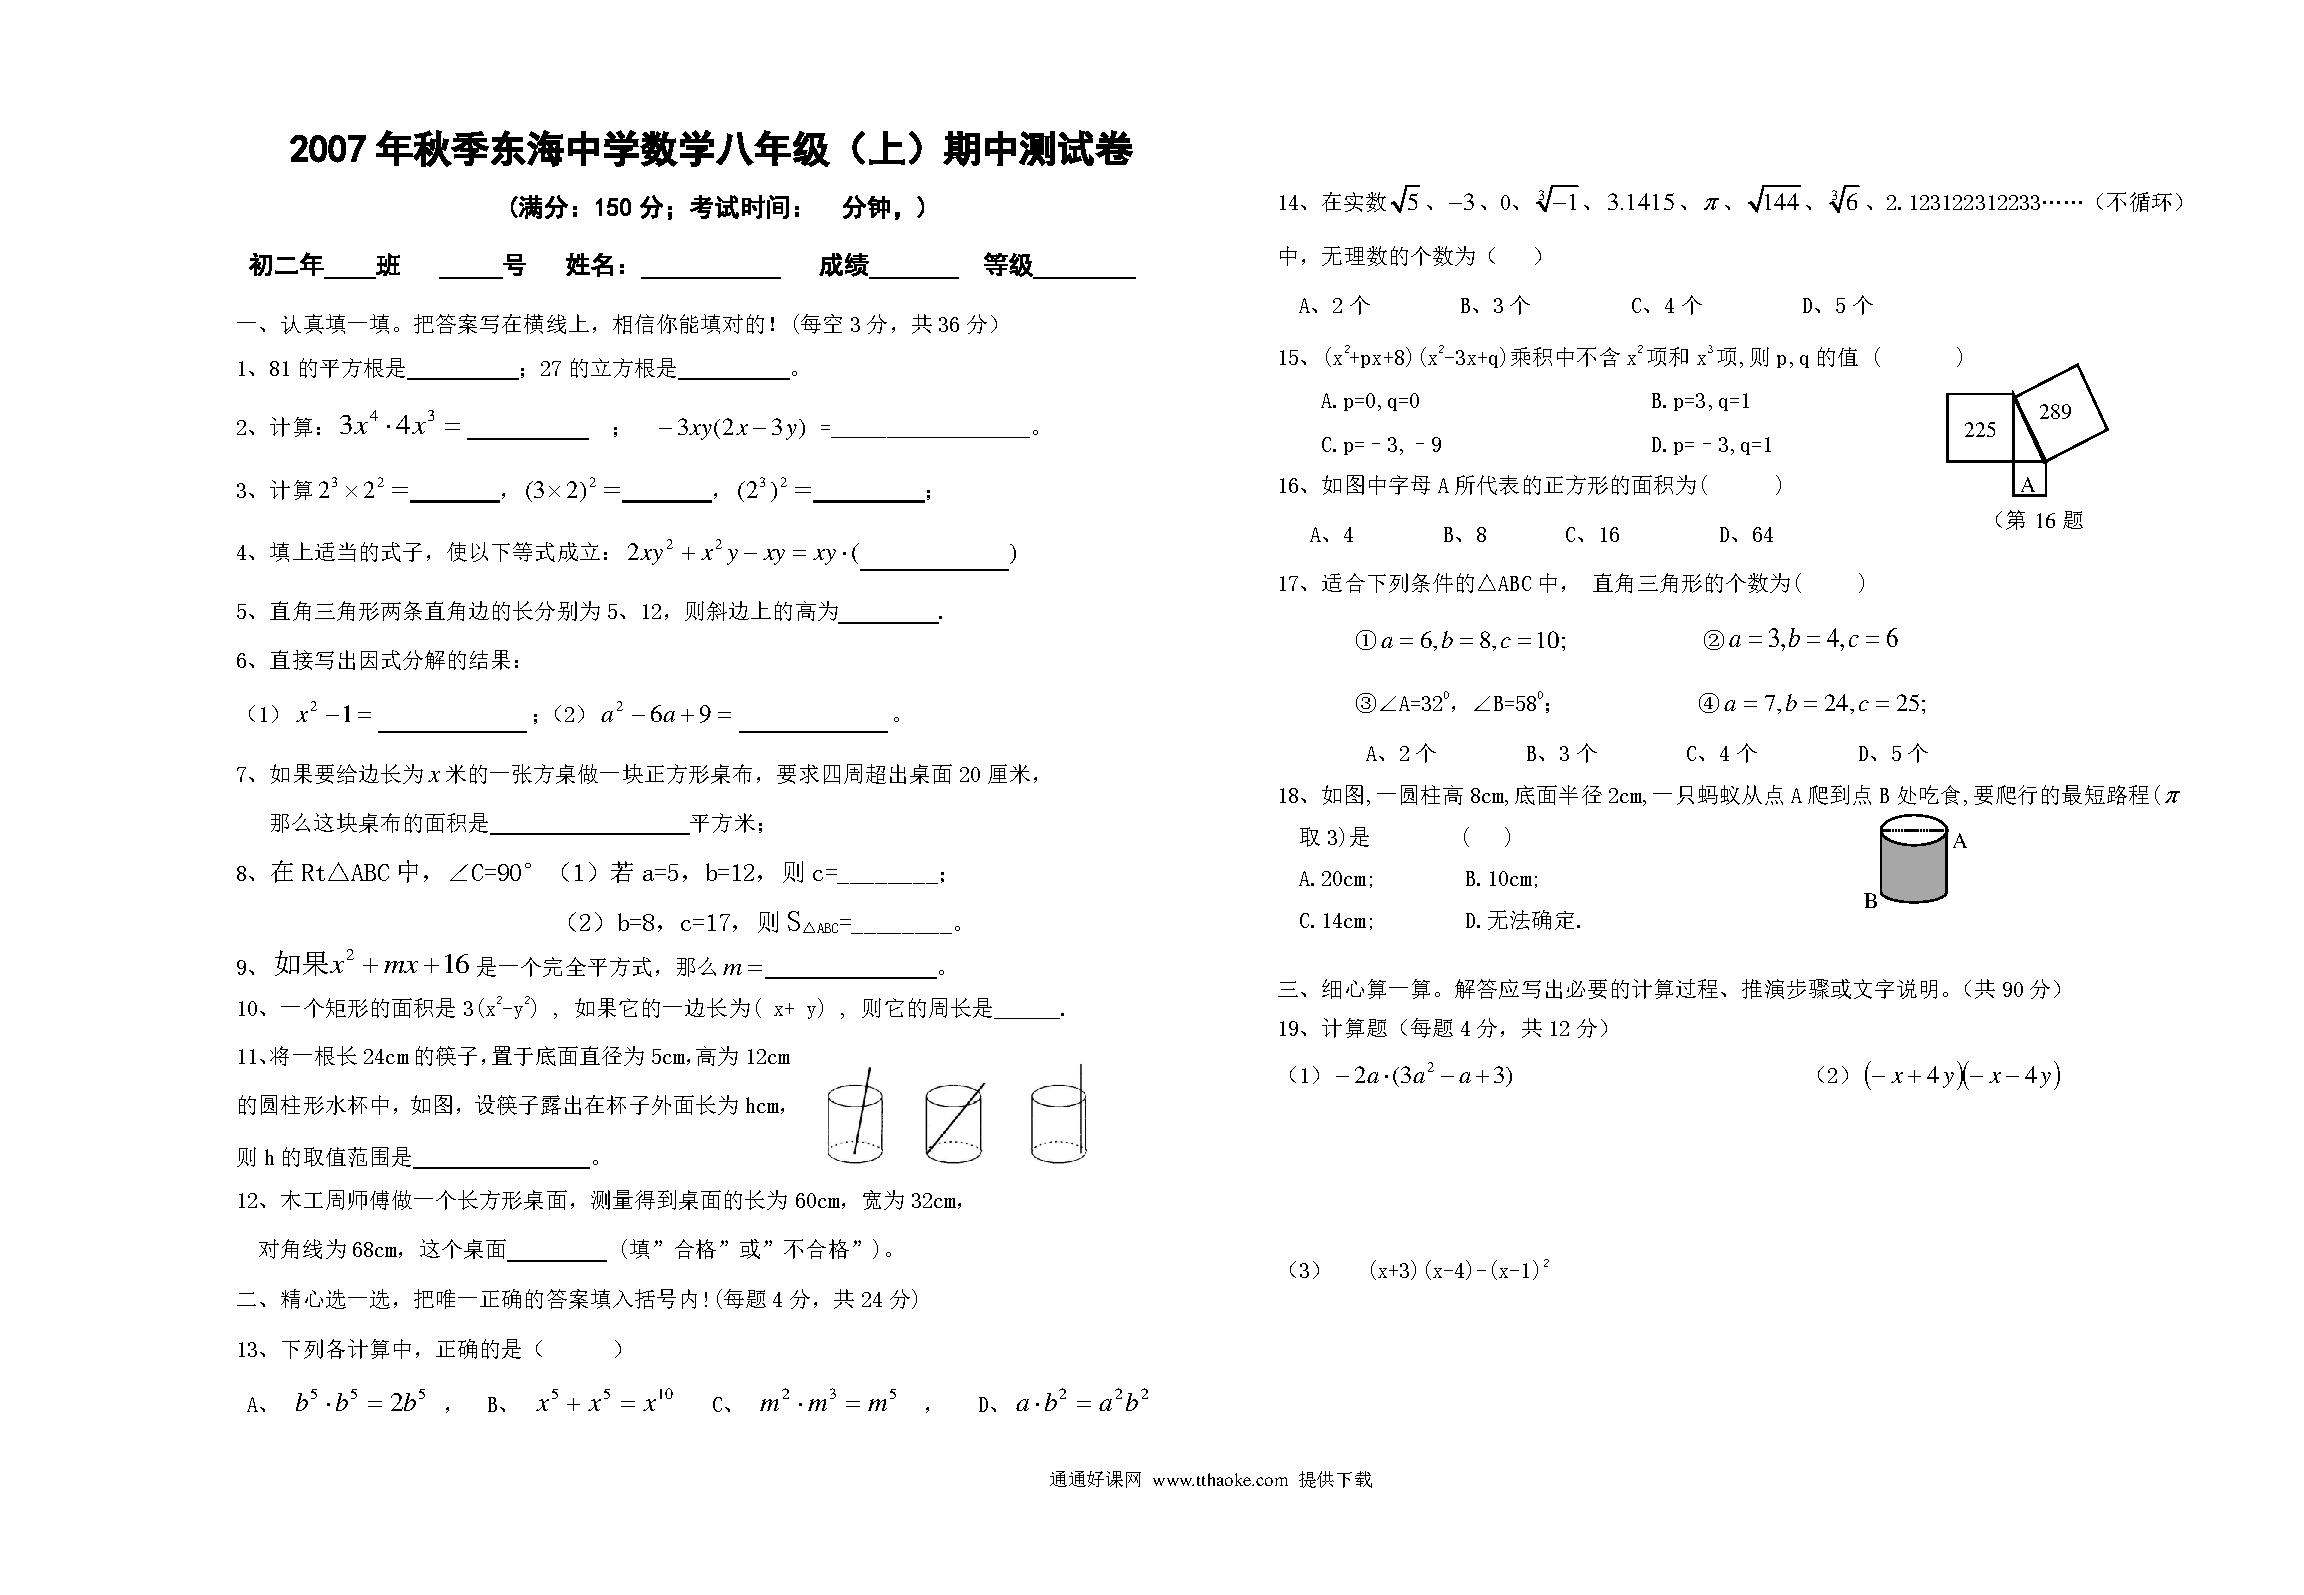 2007年秋季东海中学数学八年级（上）期中测试卷
(满分：150分；考试时间：　分钟，)
初二年____班　_____号　姓名：___________　成绩_______　等级________
一、认真填一填。把答案写在横线上，相信你能填对的！(每空3分，共36分）
1、81的平方根是__________；27的立方根是__________。
2、计算：3x⁴·4x³＝___________ ； －3xy(2x－3y) =__________________。
3、计算2³×2²＝________，(3×2)²＝________，(2³)²＝__________；
4、填上适当的式子，使以下等式成立：2xy²＋x²y－xy＝xy·(_____________)
5、直角三角形两条直角边的长分别为5、12，则斜边上的高为_________.
6、直接写出因式分解的结果：
（1）x²－1＝_____________；（2）a²－6a＋9＝_____________。
7、如果要给边长为x米的一张方桌做一块正方形桌布，要求四周超出桌面20厘米，
那么这块桌布的面积是__________________平方米；
8、在Rt△ABC中，∠C=90°（1）若a=5，b=12，则c=________；
（2）b=8，c=17，则S△ABC=________。
9、如果x²＋mx＋16是一个完全平方式，那么m＝_______________。
10、一个矩形的面积是3(x²-y²) , 如果它的一边长为( x+ y) , 则它的周长是______.
11、将一根长24cm的筷子，置于底面直径为5cm，高为12cm
的圆柱形水杯中，如图，设筷子露出在杯子外面长为hcm，
则h的取值范围是________________。
12、木工周师傅做一个长方形桌面，测量得到桌面的长为60cm，宽为32cm，
对角线为68cm，这个桌面_________ (填”合格”或”不合格”)。
二、精心选一选，把唯一正确的答案填入括号内!(每题4分，共24分)
13、下列各计算中，正确的是（　　　）
A、 b⁵·b⁵＝2b⁵ ， B、 x⁵＋x⁵＝x¹⁰ C、 m²·m³＝m⁵ ， D、a·b²＝a²b²
14、在实数√5、－3、0、∛－1、3.1415、π、√144、∛6、2.123122312233……（不循环）
中，无理数的个数为（　　）
A、2个　B、3个　C、4个　D、5个
15、(x²+px+8)(x²-3x+q)乘积中不含x²项和x³项,则p,q的值 (　　　)
A.p=0,q=0　B.p=3,q=1
C.p=–3,–9　D.p=–3,q=1
225
289
A
16、如图中字母A所代表的正方形的面积为(　　　)
（第16题
A、4　B、8　C、16　D、64
17、适合下列条件的△ABC中， 直角三角形的个数为(　　)
①a＝6,b＝8,c＝10;　②a＝3,b＝4,c＝6
③∠A=32⁰，∠B=58⁰；　④a＝7,b＝24,c＝25;
A、2个　B、3个　C、4个　D、5个
18、如图,一圆柱高8cm,底面半径2cm,一只蚂蚁从点A爬到点B处吃食,要爬行的最短路程(π
取3)是　　(　)
A
A.20cm;　B.10cm;
B
C.14cm;　D.无法确定.
三、细心算一算。解答应写出必要的计算过程、推演步骤或文字说明。（共90分）
19、计算题（每题4分，共12分）
（1）－2a·(3a²－a＋3)　（2）(－x＋4y)(－x－4y)
（3）　(x+3)(x-4)-(x-1)²
通通好课网 www.tthaoke.com 提供下载